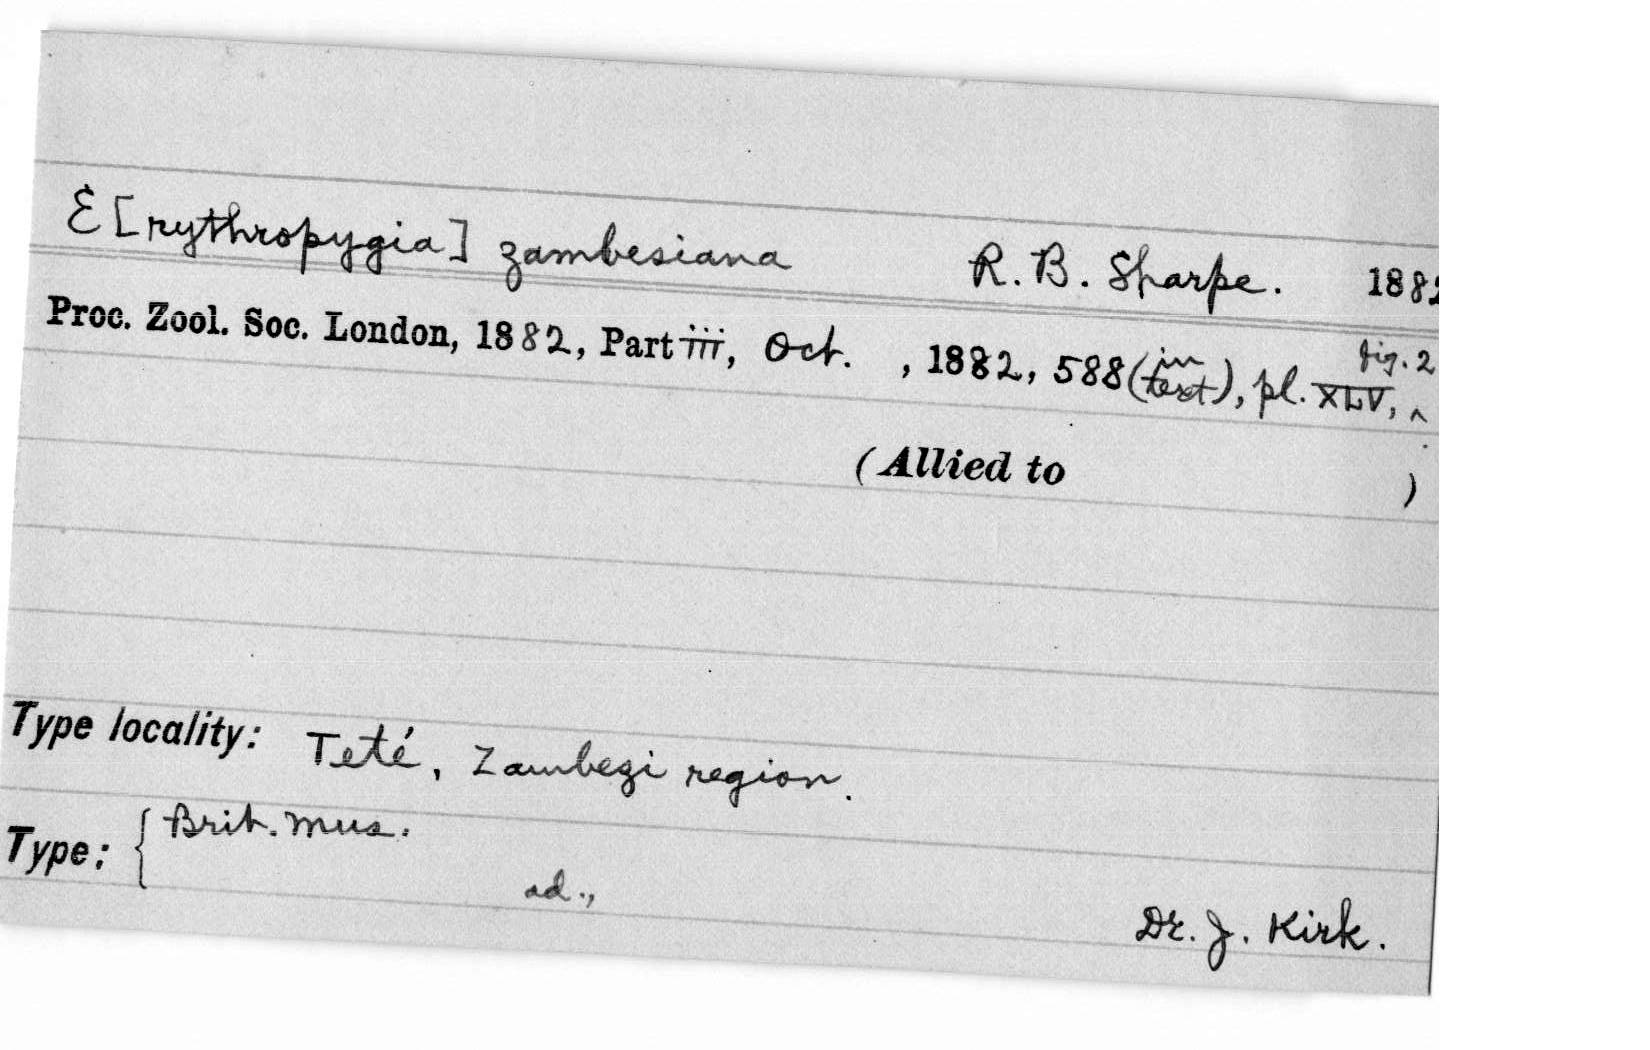 E[rythropygia] zambesiana R. B. Sharpe. 1882
Proc. Zool. Soc. London, 1882, Part iii, Oct. , 1882, 588 (in text), pl. XLV, ^ fig. 2
(Allied to )
Type locality: Teté, Zambezi region.
Type: { Brit. Mus.
ad.,
Dr. J. Kirk.